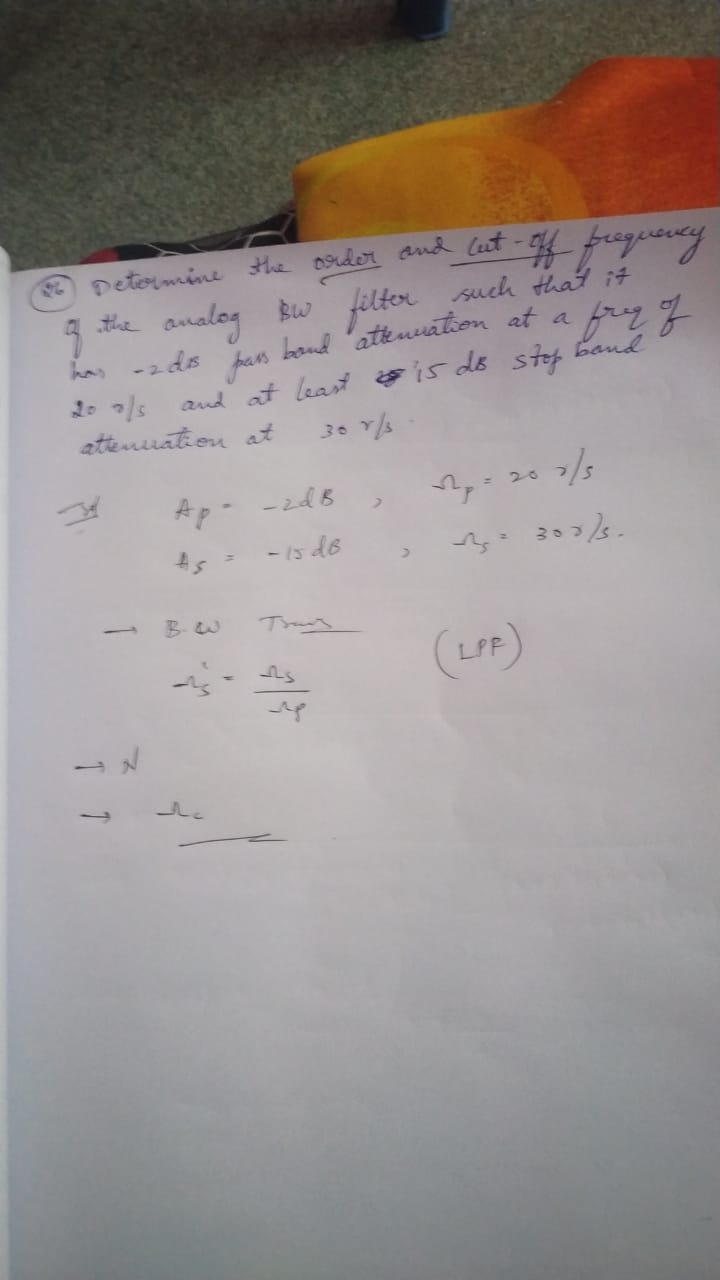 26 Determine the order and Cut-off frequency
of the analog BW filter such that it
has -2dB pass band attenuation at a freq of
20 r/s and at least 15 dB stop band
attenuation at 30 r/s.
Ap = -2dB , Ωp = 20 r/s
As = -15dB , Ωs = 30 r/s.
→ B.W Trans
(LPF)
Ωs' = Ωs
Ωp
→ N
→ Ωc